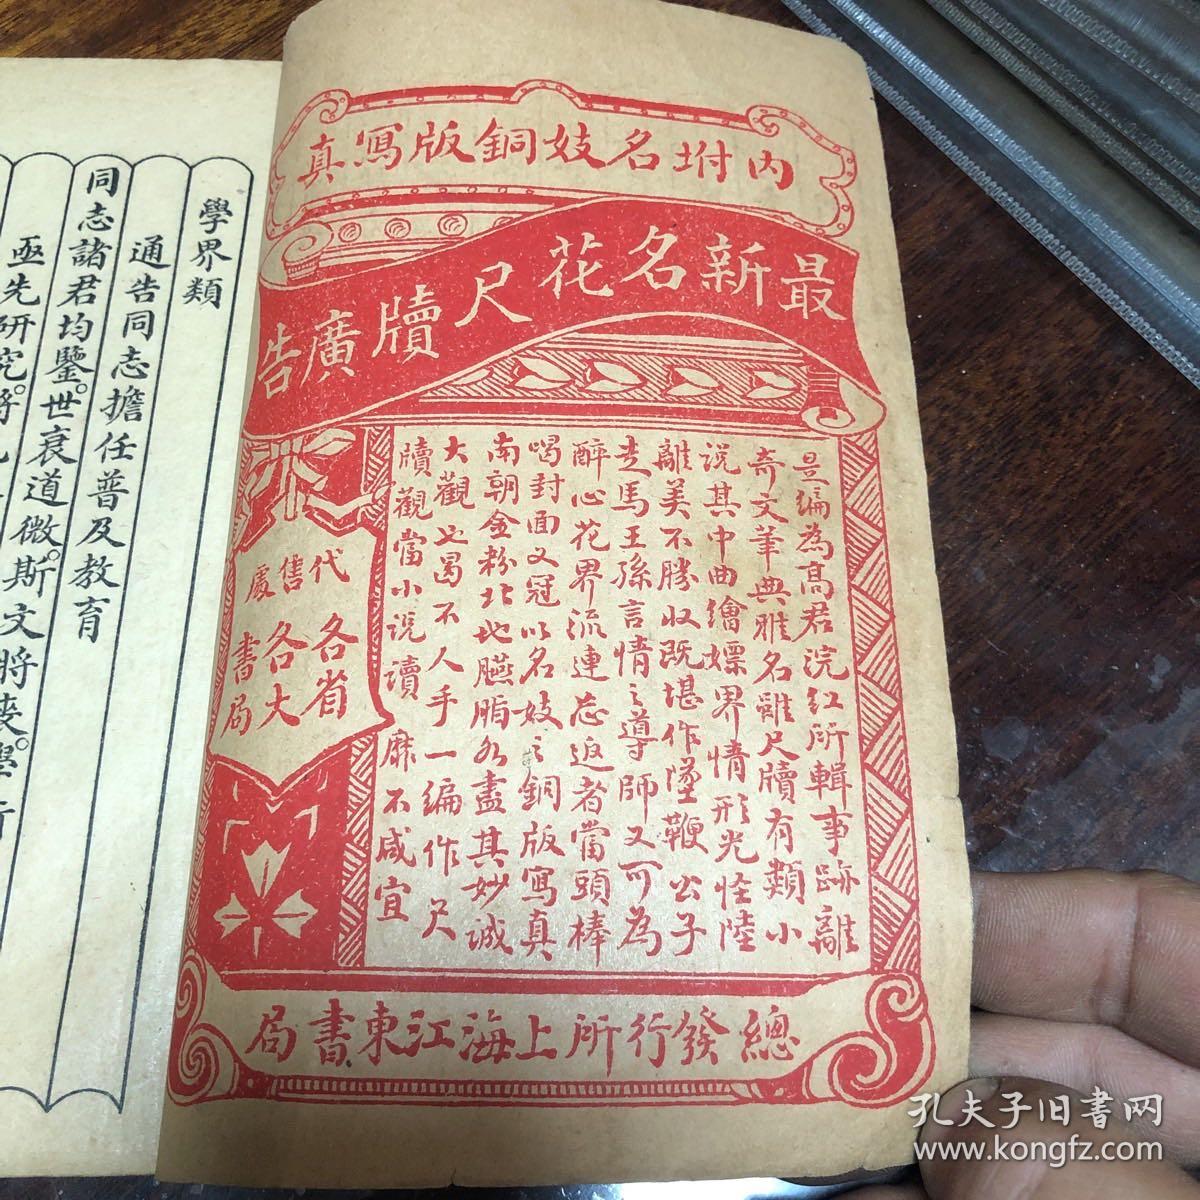 內坿名妓銅版寫真
最新名花尺牘廣告
是編為高君浣紅所輯事跡離
奇文筆典雅名雖尺牘有類小
說其中曲繪嫖界情形光怪陸
離美不勝收既堪作墜鞭公子
走馬王孫言情之導師又可為
醉心花界流連忘返者當頭棒
喝封面又冠以名妓之銅版寫真
南朝金粉北地臙脂各盡其妙誠
大觀也曷不人手一編作尺
牘觀當小說讀靡不咸宜
代售處
各省
各大
書局
總發行所上海江東書局
學界類
通告同志擔任普及教育
同志諸君均鑒。世衰道微。斯文將喪。學行
亟先研究。將
孔夫子旧书网
www.kongfz.com